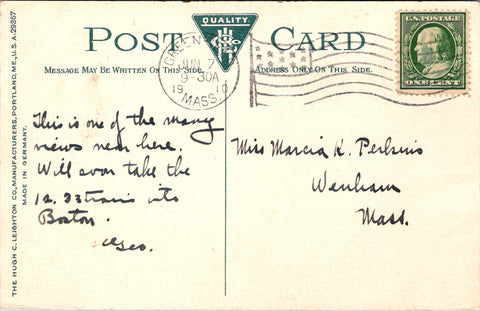 POST CARD
QUALITY
MESSAGE MAY BE WRITTEN ON THIS SIDE.
ADDRESS ONLY ON THIS SIDE.
JUN 7
30A
19 10
MASS.
U.S. POSTAGE
ONE CENT
THE HUGH C. LEIGHTON CO., MANUFACTURERS, PORTLAND, ME., U.S.A.
MADE IN GERMANY.
This is one of the many
views near here.
Will soon take the
12.33 train into
Boston.
Geo.
Miss Marcia K. Perkins
Wenham
Mass.